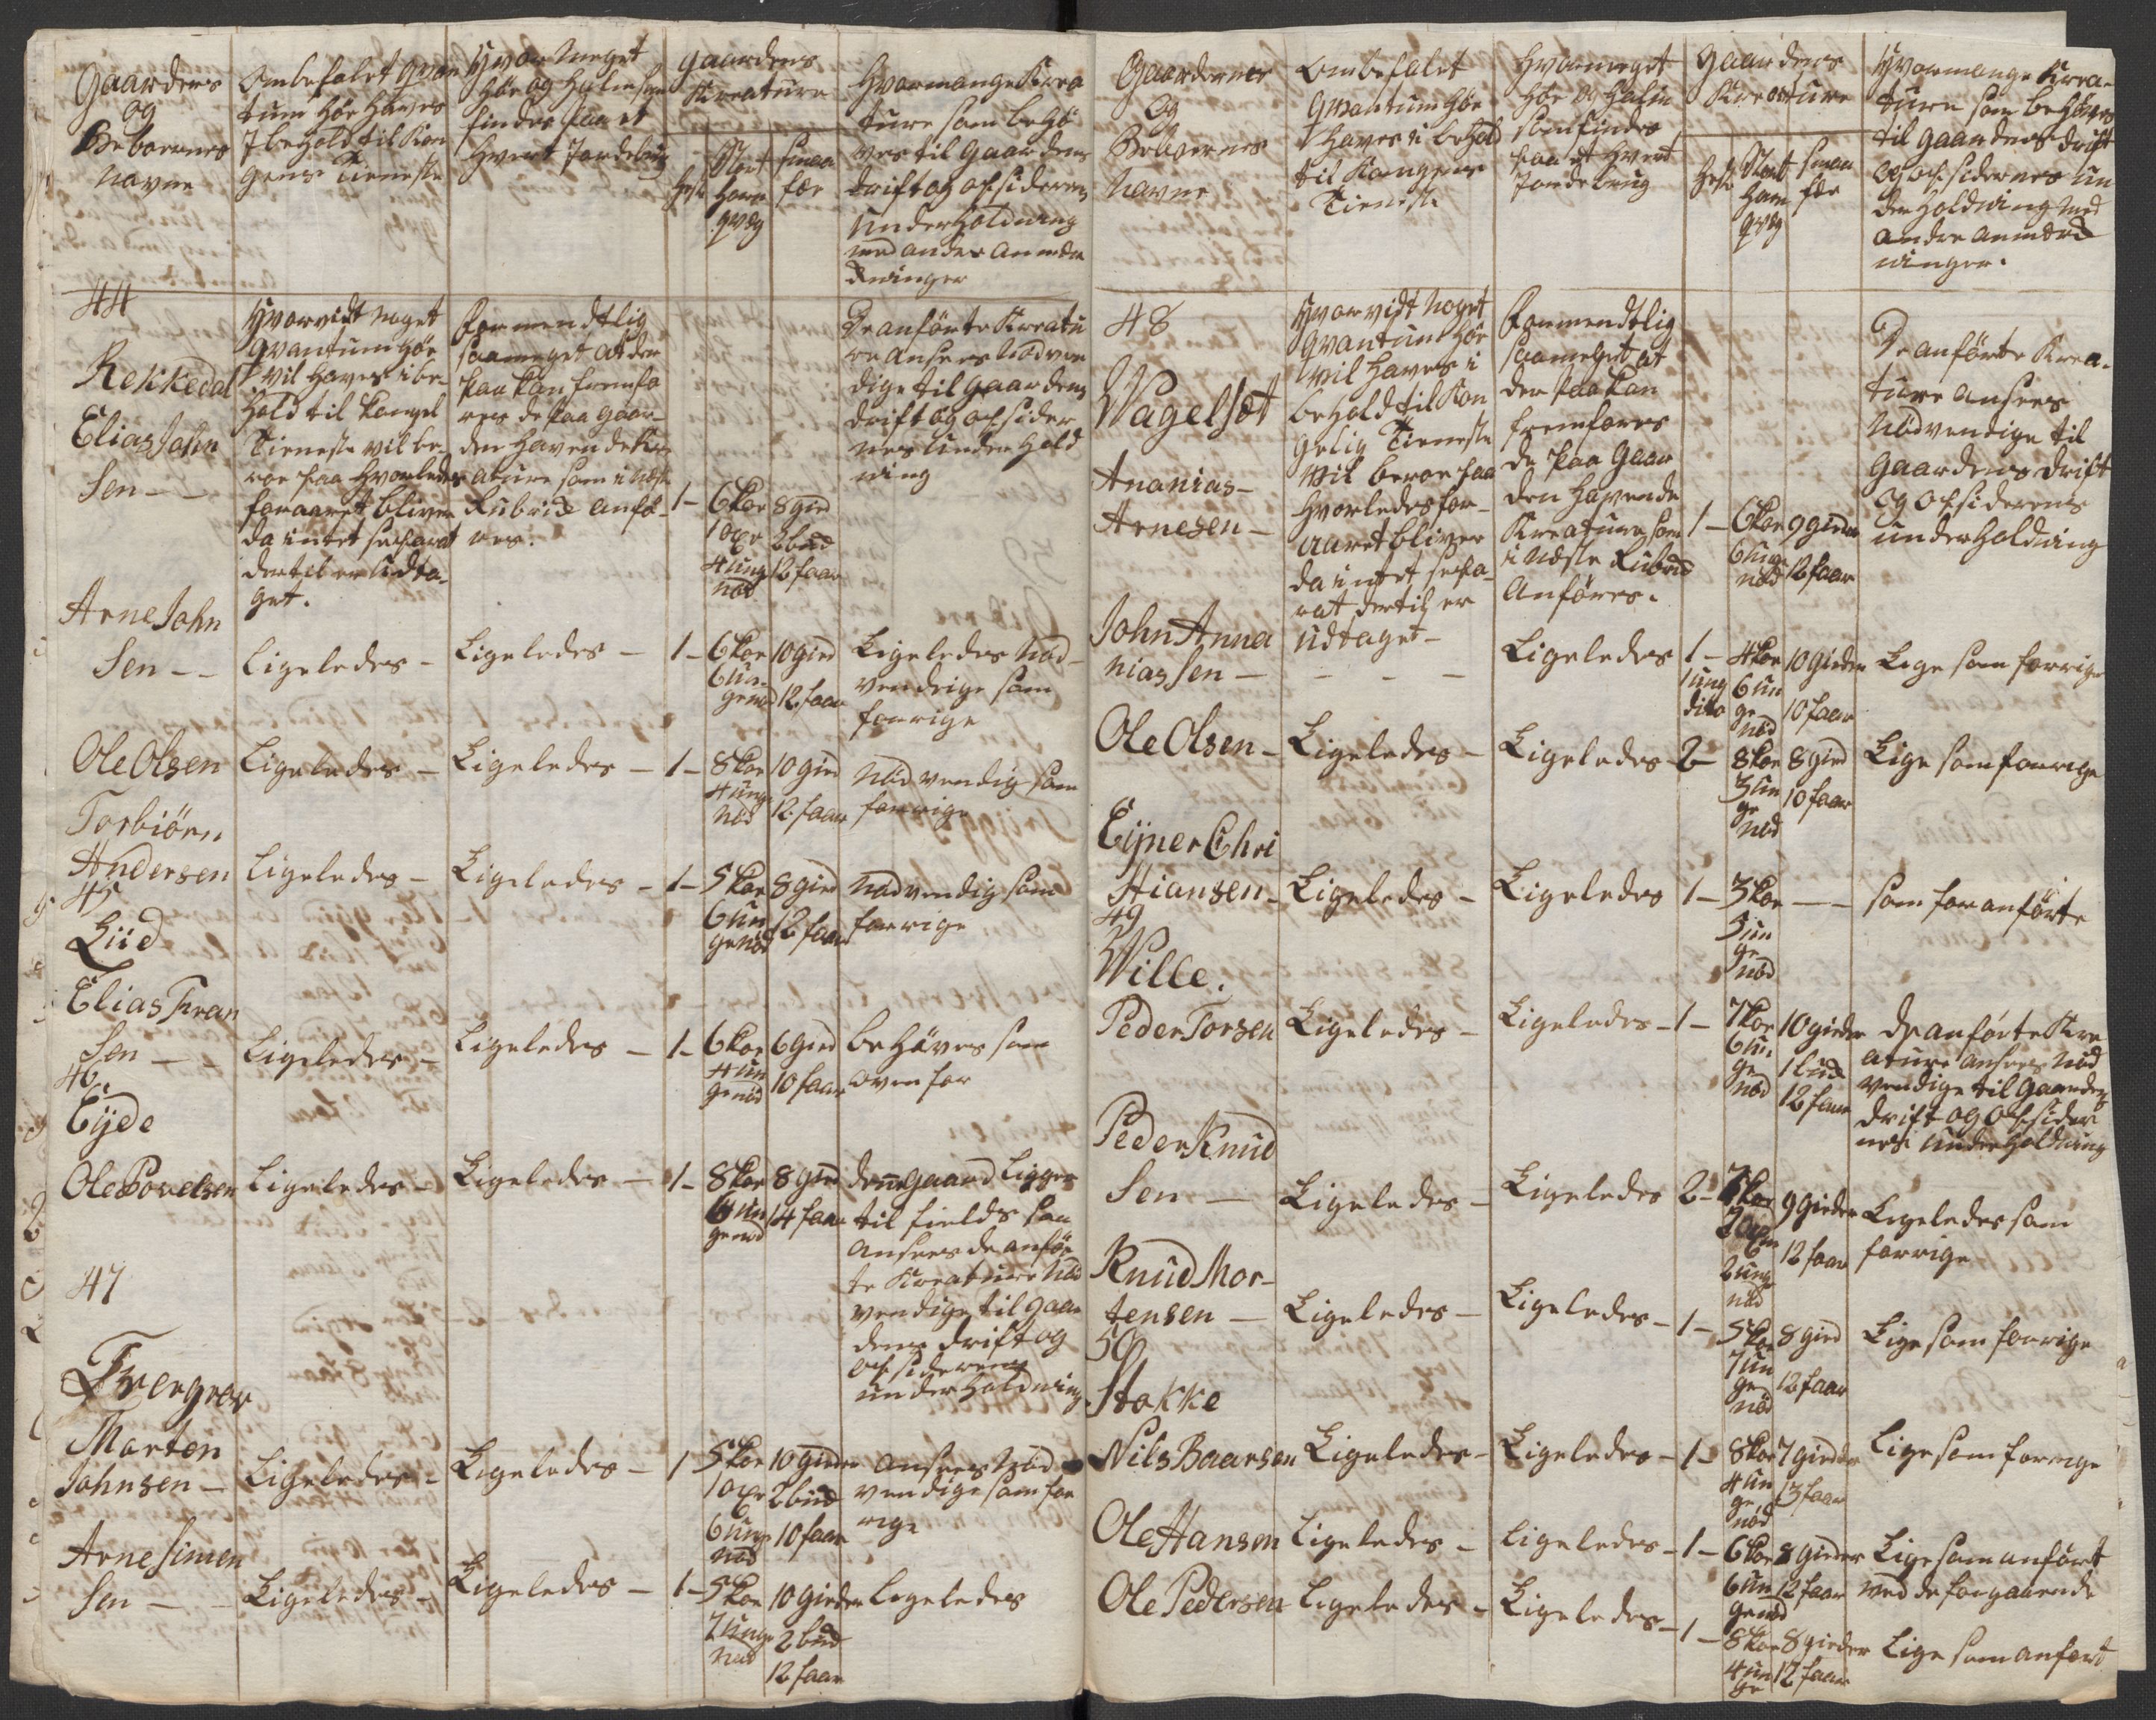 Gaardens
og
Beboernes
Navne
Ombefalet Qvan
tum Höe haves
I behold til Kon
gens Tieneste
Hvor Meget
Höe og Halm som
findes paa et
hvert Jordebrug
Gaardens
Kreature
Heste
Stort
Horn
qvæg
Smaa
fæe
Hvormange Krea
ture som behö
ves til Gaardens
drift og opsiderens
Underholdning
med andre Anmær
kninger
44
Rekkedal
Elias John
Sen - -
Hvorvidt noget
Qvantum Höe
vil haves i be-
hold til Kongel
Tieneste vil be-
roe paa hvorledes
foraaret bliver
da intet separat
dertil er udta-
get.
Formendtlig
saameget at der
paa kan fremfö
res de paa Gaar-
den havende Kre
ature som i næste
Rubrik anfö-
res.
1-
6 kör
1 oxe
4 ung
nöd
8 gied
2 bud
12 faar
De anförte Kreatu
re ansees Nödven
dige til Gaardens
drift og opsider
nes underhold
ning
Arne John
Sen - -
Ligeledes -
Ligeledes -
1-
6 kör
6 un
genöd
10 gied
12 faar
Ligeledes Nöd-
vendige som
forrige
Ole Olsen
Ligeledes -
Ligeledes -
1-
8 kör
4 unge
nöd
10 gied
12 faar
Nödvendig som
forrige
Torbiörn
Andersen
Ligeledes -
Ligeledes -
1-
5 kör
6 un
genöd
8 gied
12 faar
Nödvendig som
forrige
45
Liid
Elias Fran
Sen - -
Ligeledes -
Ligeledes -
1-
6 kör
4 un
genöd
6 gied
10 faar
behöves som
ovenfor
46.
Eyde
Ole Povelsen
Ligeledes -
Ligeledes -
1-
8 kör
6 un
genöd
8 gied
14 faar
denne gaard Ligger
til fields saa
ansees de anför
te Kreature Nöd
vendige til Gaar
dens drift og
opsiderens
underholdning
47
Tvergrov
Morten
Johnsen -
Ligeledes -
Ligeledes -
1
5 kör
1 oxe
6 unge
nöd
10 gieder
2 bud
10 faar
ansees Nöd
vendige som for
rige
Arne Simen
Sen - -
Ligeledes -
Ligeledes -
1-
5 kör
7 unge
nöd
10 gieder
2 bud
12 faar
Ligeledes
Gaardernes
Og
Beboernes
Navne
Ombefalet
Qvantum Höe
haves i behold
til Kongens
Tieneste
Hvormeget
Höe og Halm
som findes
paa et hvert
Jordebrug
Gaardens
Kreature
Heste
Stort
Horn
qvæg
Smaa
fæe
Hvormange Krea-
ture som behöves
til Gaardens drift
og opsidernes un
derholdning med
andre anmærk
ninger.
48
Vagelsæt
Ananias -
Arnesen -
Hvorvidt noget
Qvantum Höe
vil haves i
behold til Kon
gelig Tieneste
vil beroe paa
hvorledes for-
aaret bliver
da intet sepa-
rat dertil er
udtaget -
Formendtlig
saameget at
der paa kan
fremföres
de paa Gaar
den havende
Kreature som
i næste Rubrik
Anföres.
1-
6 kör
6 unge
nöd
9 gieder
12 faar
De anförte Krea-
ture ansees
Nödvendige til
Gaardens drift
og opsiderens
underholdning
John Anna
nias Sen -
- - -
Ligeledes
1-
1 ung
dito
4 kör
6 un
ge
nöd
10 gieder
10 faar
Lige som forrige
Ole Olsen -
Ligeledes -
Ligeledes -
2-
8 kör
3 un
ge
nöd
8 gied
10 faar
Lige som forrige
Ejner Chri
stiansen -
Ligeledes -
Ligeledes
1-
3 kör
5 un
ge
nöd
- -
som for anförte
49
Ville.
Peder Torsen
Ligeledes -
Ligeledes -
1-
7 kör
6 un
ge
nöd
10 gieder
1 bud
12 faar
De anförte Kre
ature ansees Nöd
vendige til Gaardens
drift og opsider
nes underholdning
Peder Knud
Sen -
Ligeledes -
Ligeledes
2-
kör
oxe
2 unge
nöd
9 gieder
12 faar
Ligeledes som
forrige
Knud Mor-
tensen -
Ligeledes -
Ligeledes -
1-
5 kör
7 un
ge
nöd
8 gied
12 faar
Lige som forrige
50
Stokke
Nils Baarsen
Ligeledes -
Ligeledes -
1-
8 kör
4 un
ge
nöd
7 gieder
13 faar
Lige som forrige
Ole Hansen
Ligeledes -
Ligeledes -
1-
6 kör
6 un
genöd
8 gieder
12 faar
Lige som anfört
ved de forgaaende
Ole Pedersen
Ligeledes -
Ligeledes -
1-
8 kör
4 un
ge
8 gieder
12 faar
Lige som anfört